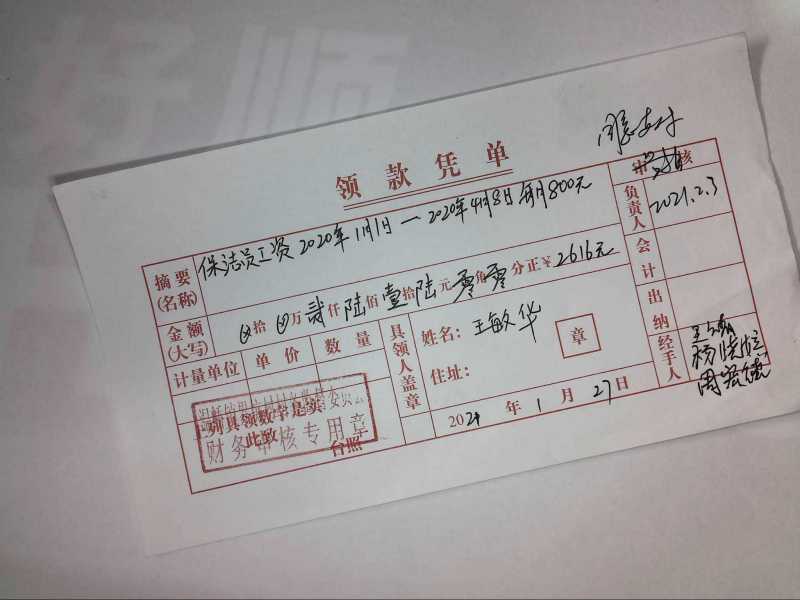 好顺
同意支付
领款凭单
审核
摘要(名称) 保洁员工资2020年1月1日—2020年4月8日每月800元
负责人 2021.2.3
金额(大写) ⊗拾⊗万贰仟陆佰壹拾陆元零角零分正¥2616元
会计
计量单位 单价 数量
具领人盖章
姓名：王敏华
章
住址：
出纳
经手人
列具领数字是实
此致
台照
财务审核专用章
2021年1月27日